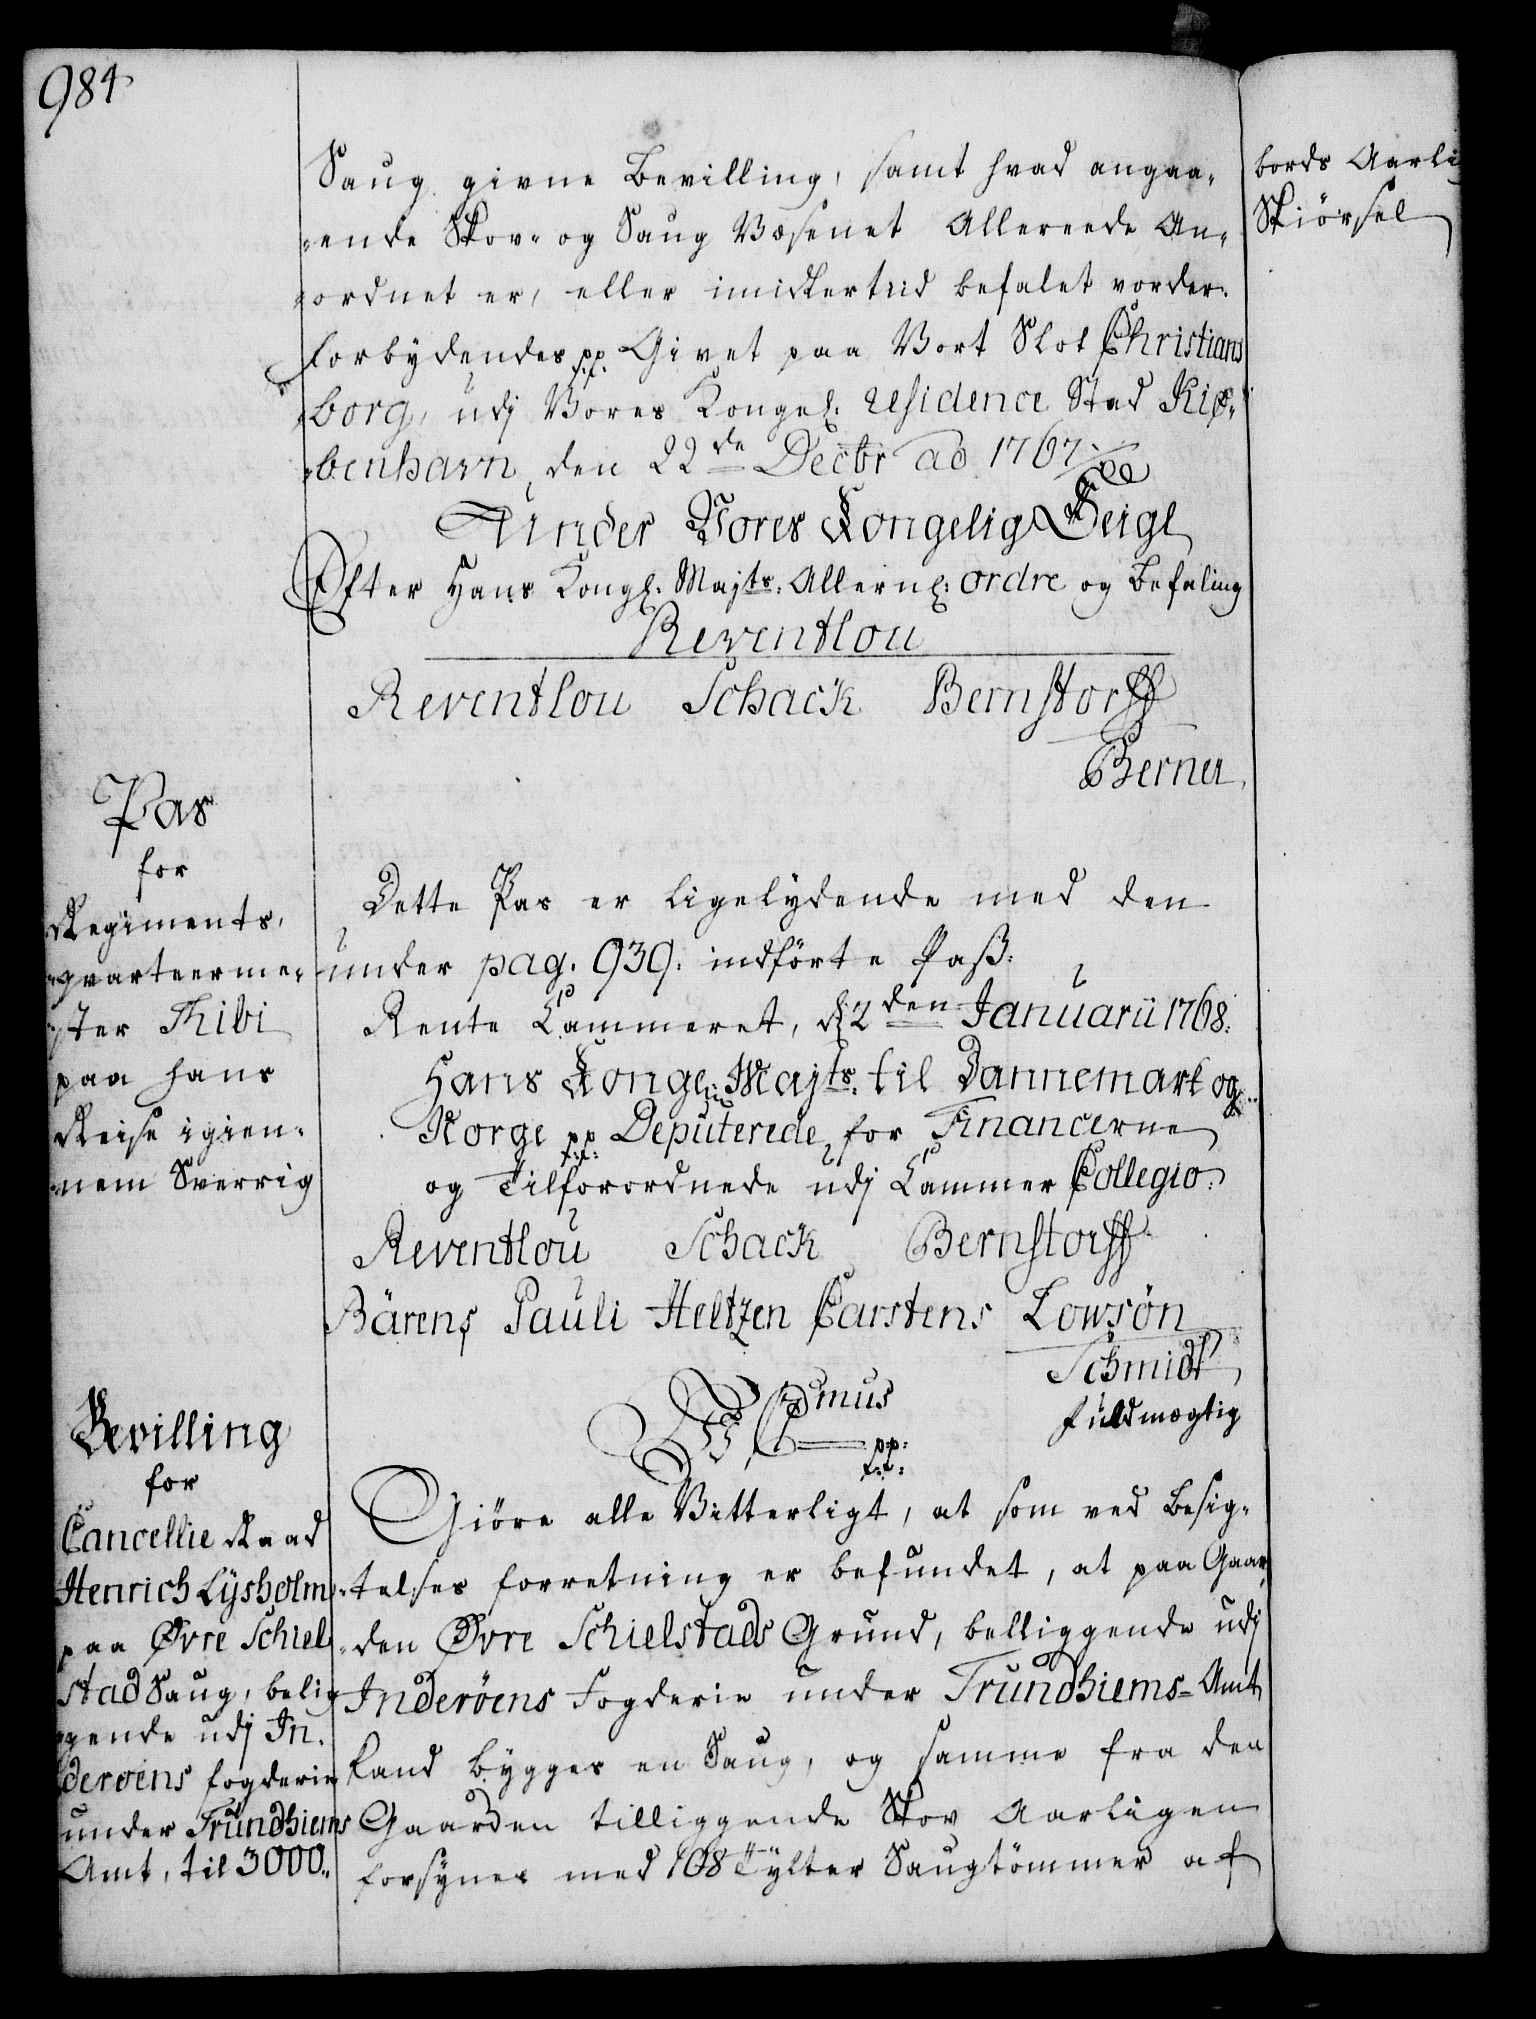 984
Saug givne Bevilling, samt hvad angaa-
-ende Skov- og Saug Væsenet Allereede An-
-ordnet er, eller imidlertiid befalet vorder.
Forbydendes pp. Givet paa Vort Slot Christians
borg, udj Vores Kongel: residence Stad Kiø-
-benhavn, den 22de Decbr ao 1767.
Under Vores Kongelig Seigl
Efter Hans Kongl: Majts: Allern: ordre og Befaling
Reventlou
Reventlou Schack Bernstorff
Berner
Pas
for
Regiments-
-qvarteerme-
-ster Thibi
paa hans
Reise igien-
-nem Sverrig
Dette Pas er ligelydende med den
under pag. 939. indførte Pass.
Rente Cammeret, d: 2den Januarii 1768.
Hans Kongl: Majts. til Dannemark og
Norge pp Deputerede for Financerne
og Tilforordnede udj Cammer Collegio.
Reventlou Schack Bernstorff
Bärens Pauli Heltzen Carstens Lowsøn
Schmidt
fuldmægtig
Bevilling
for
Cancellie Raad
Henrich Lysholm
paa Øvre Schiel
stad Saug, belig
gende udj In-
deröens fogderie
under Trundhiems
Amt, til 3000..
bords Aarli
Skiørsel
W. C 7mus pp:
Giöre alle Vitterligt, at som ved Besig-
-telses forretning er befundet, at paa Gaar
-den Øvre Schielstads Grund, belliggende udj
Inderöens Fogderie under Trundhiems-Amt
kand bygges en Saug, og samme fra den
Gaarden tilliggende Skov Aarligen
forsynes med 108 Tylter Saugtömmer af